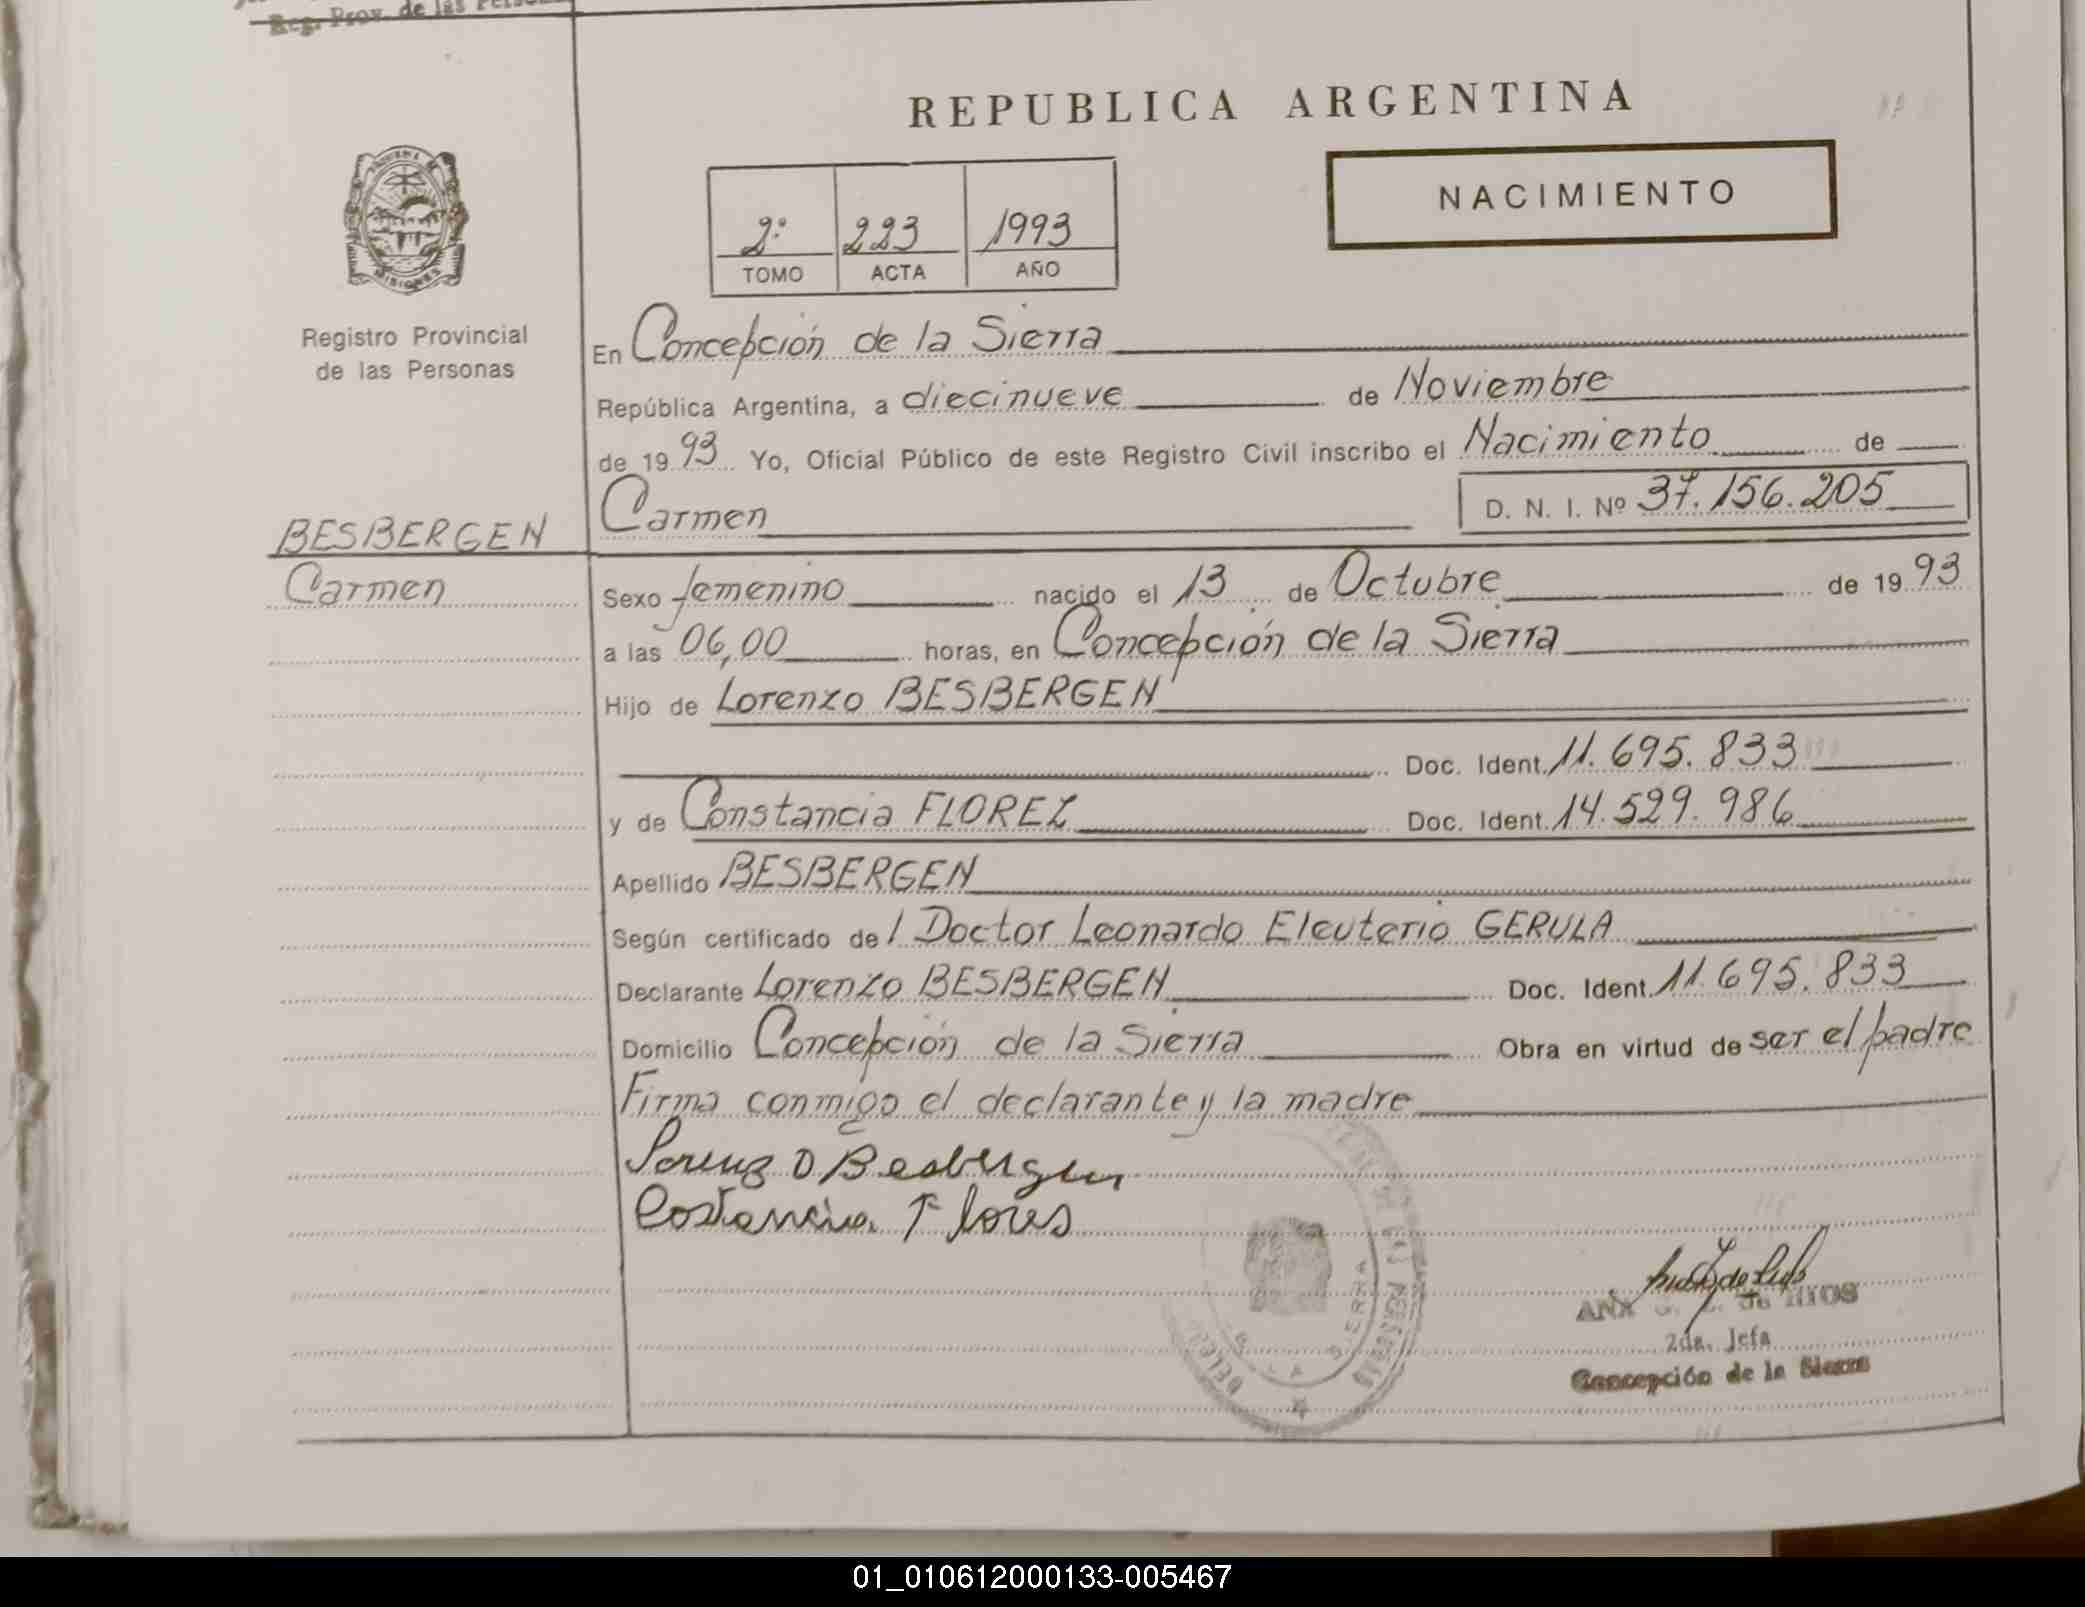 Reg. Prov. de las Personas
REPUBLICA ARGENTINA
NACIMIENTO
2º 223 1993
TOMO ACTA AÑO
MISIONES
Registro Provincial
de las Personas
En Concepción de la Sierra
República Argentina, a diecinueve de Noviembre
de 19 93 Yo, Oficial Público de este Registro Civil inscribo el Nacimiento de
Carmen D. N. I. Nº 37.156.205
BESBERGEN
Carmen
Sexo femenino nacido el 13 de Octubre de 19 93
a las 06,00 horas, en Concepción de la Sierra
Hijo de Lorenzo BESBERGEN
Doc. Ident. 11.695.833
y de Constancia FLOREZ Doc. Ident. 14.529.986
Apellido BESBERGEN
Según certificado del Doctor Leonardo Eleuterio GERULA
Declarante Lorenzo BESBERGEN Doc. Ident. 11.695.833
Domicilio Concepción de la Sierra Obra en virtud de ser el padre
Firma conmigo el declarante y la madre
Lorenzo Besbergen
Costancia Flores
ANA de RIOS
2da. Jefa
Concepción de la Sierra
01_010612000133-005467